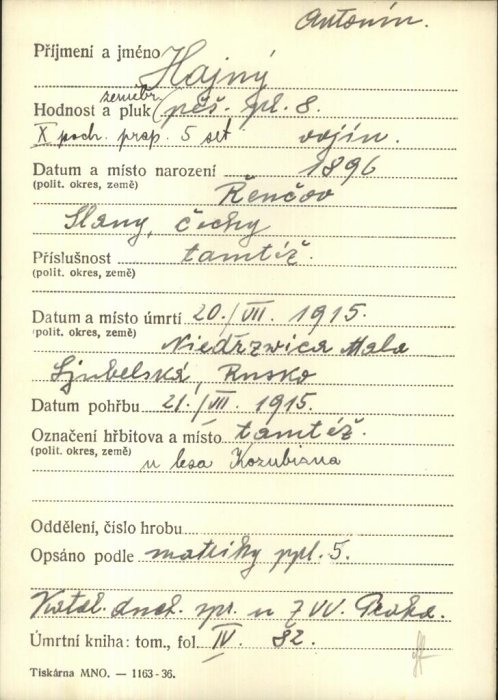 Antonín.
Příjmení a jméno Hajný
zeměbr.
Hodnost a pluk pěš. pl. 8.
X poch. prap. 5 set vojín.
Datum a místo narození 1896
(polit. okres, země) Řenčov
Slany, Čechy
Příslušnost tamtéž.
(polit. okres, země)
Datum a místo úmrtí 20./VII. 1915.
(polit. okres, země) Niedřzwica Mala
Ljubelská, Rusko
Datum pohřbu 21./VII. 1915.
Označení hřbitova a místo tamtéž.
(polit. okres, země) u lesa Kozubiana
Oddělení, číslo hrobu
Opsáno podle matriky ppl. 5.
duch. spr. u ZVV. Praha.
Úmrtní kniha: tom., fol. IV. 82.
Tiskárna MNO. — 1163-36.